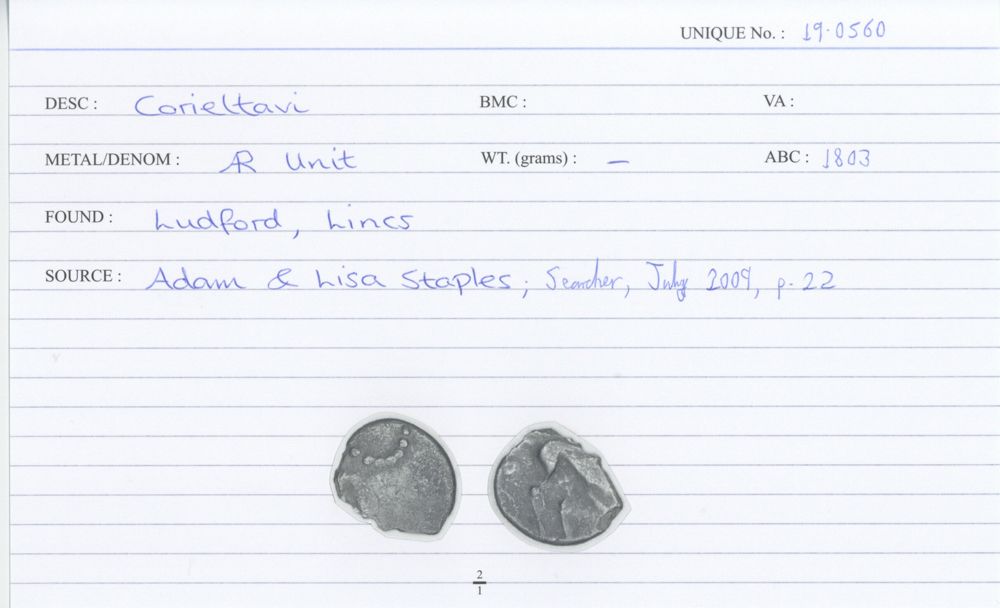 UNIQUE No. : 19.0560
DESC : Corieltavi BMC : VA :
METAL/DENOM : AR Unit WT. (grams) : – ABC : 1803
FOUND : Ludford, Lincs
SOURCE : Adam & Lisa Staples; Searcher, July 2009, p. 22
2
1